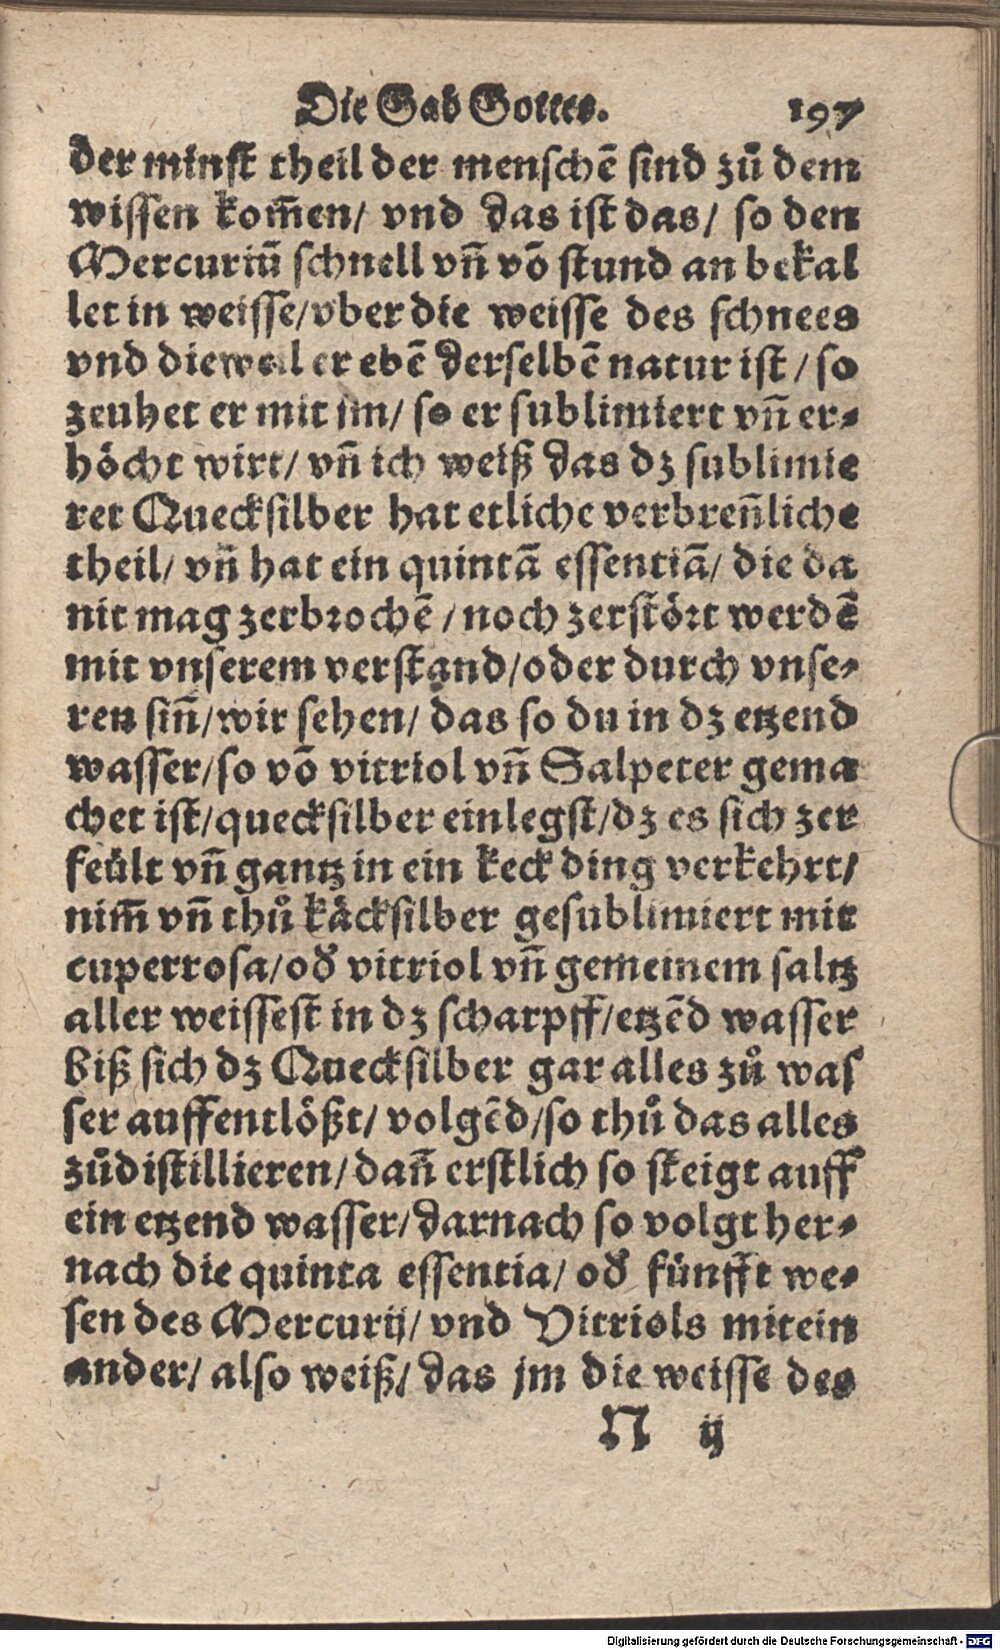 Die Gab Gottes. 197
der minst theil der menschẽ sind zů dem
wissen kom̃en/ vnd das ist das/ so den
Mercuriũ schnell vñ võ stund an bekal
let in weisse/vber die weisse des schnees
vnd dieweil er ebẽ derselbẽ natur ist/ so
zeuhet er mit jm/ so er sublimiert vñ er-
höcht wirt/ vñ ich weiß das dz sublimie
ret Quecksilber hat etliche verbreñliche
theil/ vñ hat ein quintã essentiã/ die da
nit mag zerbrochẽ/noch zerstört werdẽ
mit vnserem verstand/oder durch vnse-
ren siñ/wir sehen/ das so du in dz etzend
wasser/so võ vitriol vñ Salpeter gema
chet ist/quecksilber einlegst/dz es sich zer
feült vñ gantz in ein keck ding verkehrt/
nim̃ vñ thů käcksilber gesublimiert mit
cuperrosa/oď vitriol vñ gemeinem saltz
aller weissest in dz scharpff/etzẽd wasser
biß sich dz Quecksilber gar alles zů was
ser auffentlößt/ volgẽd/so thů das alles
zůdistillieren/dañ erstlich so steigt auff
ein etzend wasser/darnach so volgt her-
nach die quinta essentia/ oď fünfft we-
sen des Mercurij/ vnd Vitriols mitein
ander/ also weiß/ das jm die weisse des
N ij
Digitalisierung gefördert durch die Deutsche Forschungsgemeinschaft - DFG